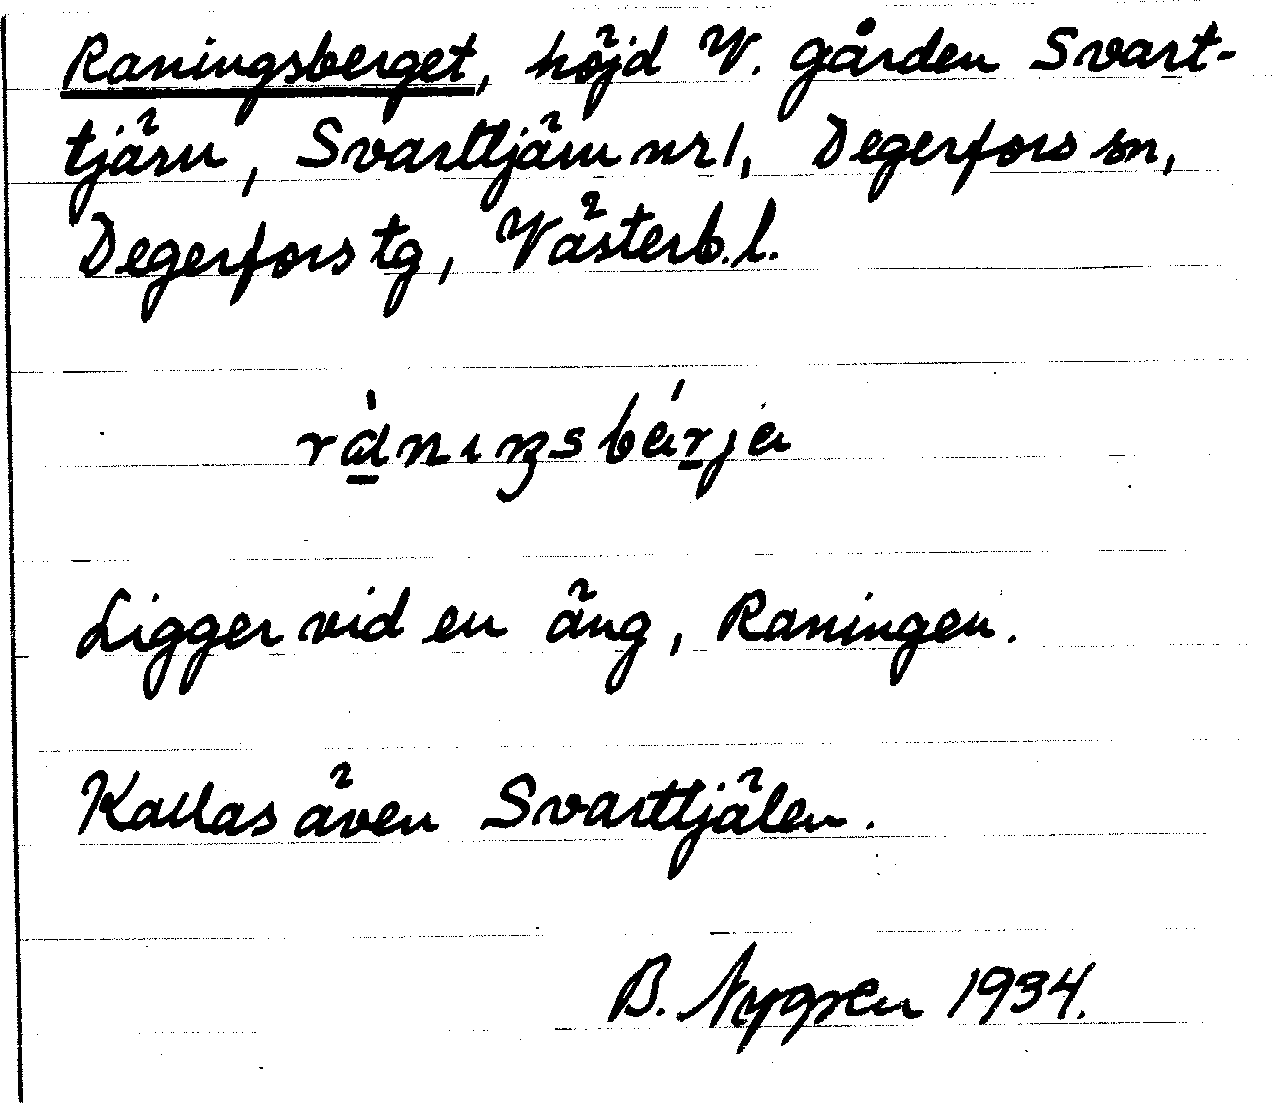 Raningsberget, höjd V. gården Svart-
tjärn, Svarttjärn nr 1, Degerfors sn,
Degerfors tg, Västerb. l.
rà̱nɩŋsbár̠ja
Ligger vid en äng, Raningen.
Kallas även Svarttjälen.
B. Nygren 1934.